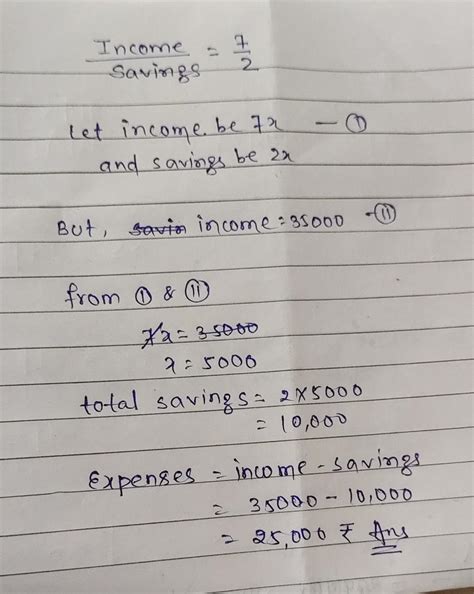 Income / Savings = 7/2
Let income be 7x — ①
and savings be 2x
But, savin income = 35000 - ⑪
from ① & ⑪
7x = 35000
x = 5000
total savings = 2×5000
= 10,000
Expenses = income - savings
= 35000 - 10,000
= 25,000 ₹ Ans